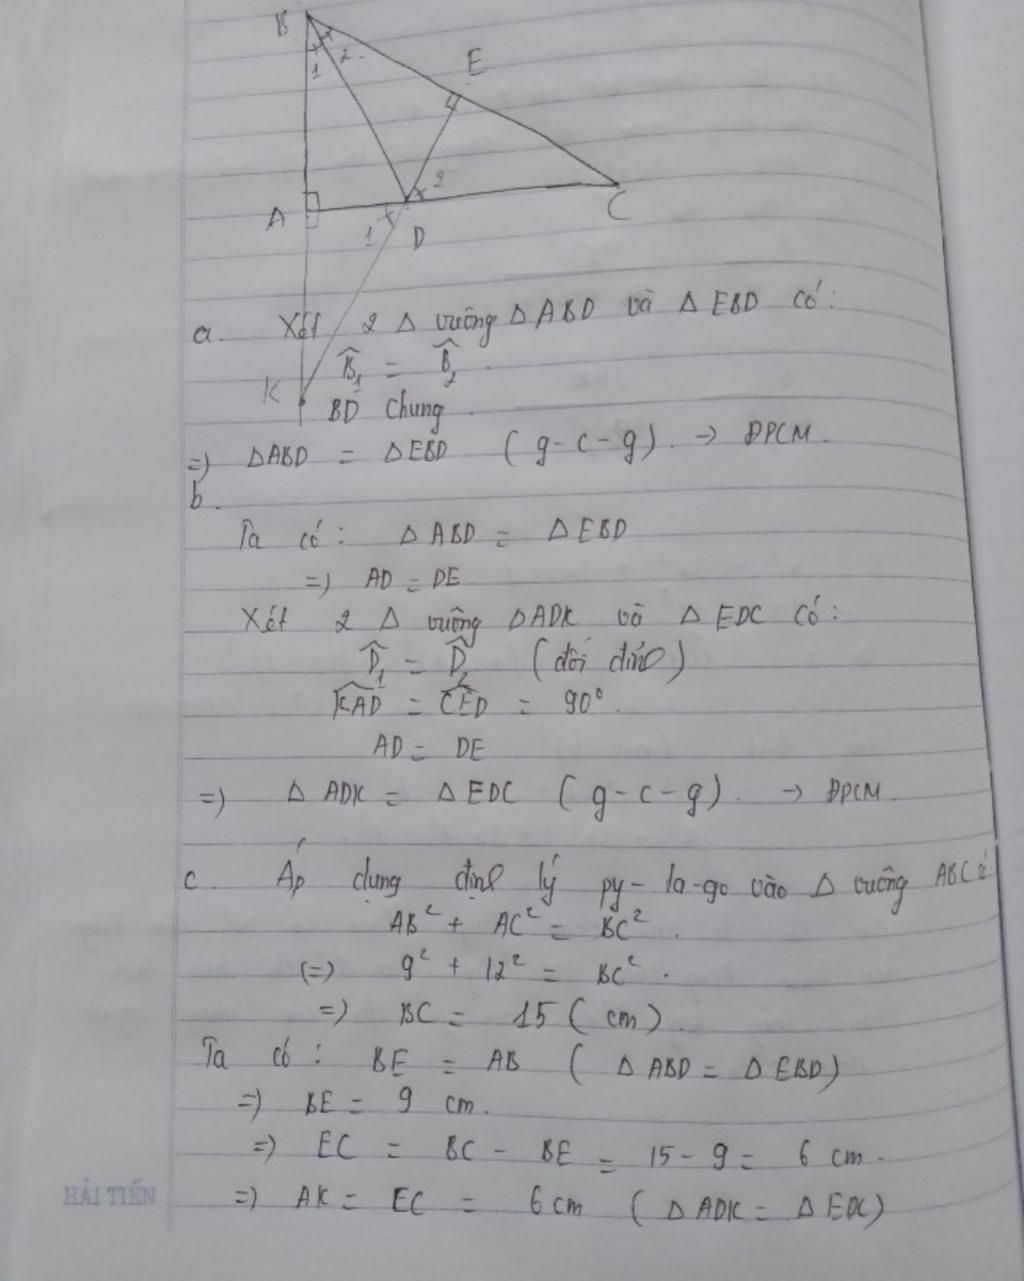 B
1 2
E
A
2
C
1 D
a. Xét 2 Δ vuông Δ ABD và Δ EBD có:
B̂₁ = B̂₂.
K
BD chung.
=) ΔABD = ΔEBD (g-c-g). → ĐPCM.
b.
Ta có: Δ ABD = Δ EBD
=) AD = DE
Xét 2 Δ vuông ΔADK và Δ EDC có:
D̂₁ = D̂₂ (đối đỉnh)
K̂AD = ĈED = 90°.
AD = DE
=) Δ ADK = Δ EDC (g-c-g). → ĐPCM.
c. Áp dụng định lý py-ta-go vào Δ vuông ABC có
AB² + AC² = BC².
(=) 9² + 12² = BC².
=) BC = 15 (cm).
Ta có: BE = AB (Δ ABD = Δ EBD)
=) BE = 9 cm.
=) EC = BC - BE = 15 - 9 = 6 cm.
HẢI TIẾN
=) AK = EC = 6 cm (Δ ADK = Δ EDC)